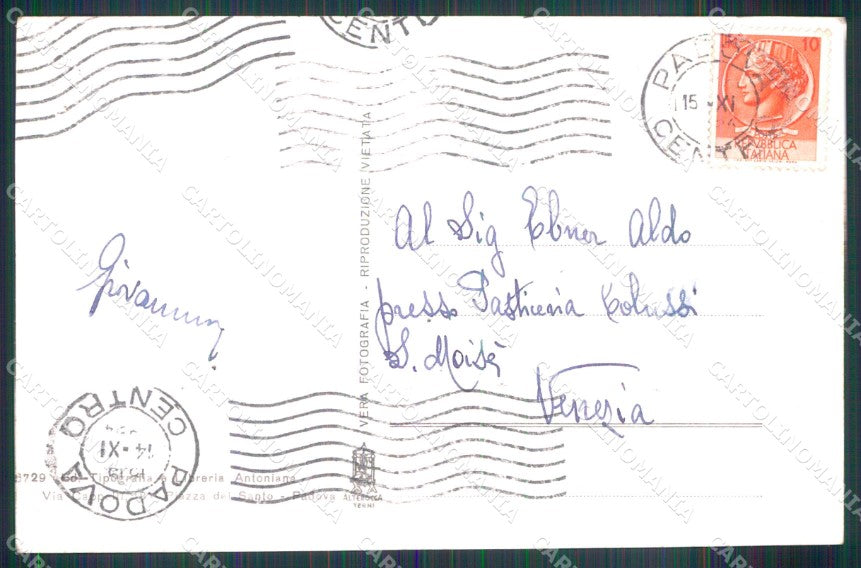 CENTRO
PADOVA
15-XI
CENTRO
10
REPUBBLICA
ITALIANA
VERA FOTOGRAFIA - RIPRODUZIONE VIETATA
Al Sig Ebner Aldo
presso Pasticceria Colussi
S. Moisè
Venezia
Giovanni
PADOVA
CENTRO
14-XI
8729 Tipografia e Libreria Antoniana
Via Piazza del Santo - Padova
ALTEROCCA
TERNI
CARTOLINOMANIA